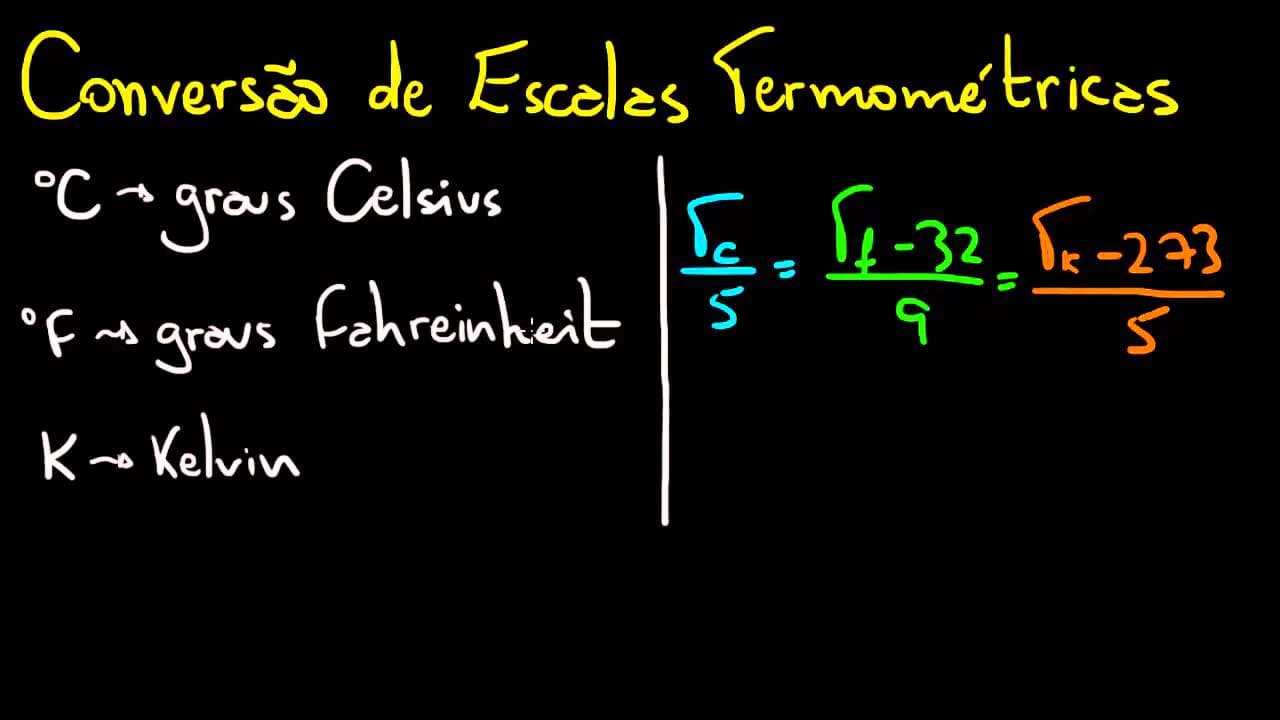 Conversão de Escalas Termométricas
°C → graus Celsius
°F → graus Fahreinheit
K → Kelvin
Tc/5 = Tf - 32/9 = Tk - 273/5